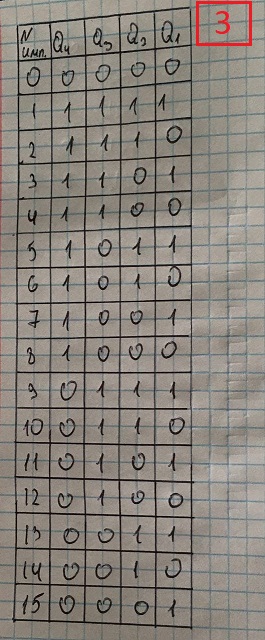 3
N имп. Q4 Q3 Q2 Q1
0 0 0 0 0
1 1 1 1 1
2 1 1 1 0
3 1 1 0 1
4 1 1 0 0
5 1 0 1 1
6 1 0 1 0
7 1 0 0 1
8 1 0 0 0
9 0 1 1 1
10 0 1 1 0
11 0 1 0 1
12 0 1 0 0
13 0 0 1 1
14 0 0 1 0
15 0 0 0 1